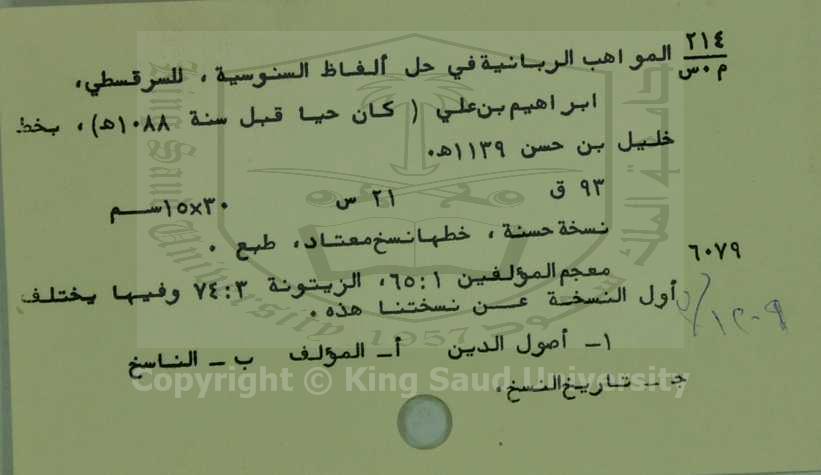 ٢١٤ المواهب الربانية في حل ألفاظ السنوسية ، للسرقسطي،
م٠س
ابراهيم بن علي ( كان حيا قبل سنة ١٠٨٨ه) ، بخط
خليل بن حسن ١١٣٩ه٠
٩٣ ق ٢١ س ٣٠×١٥سم
نسخة حسنة ، خطها نسخ معتاد، طبع .
٦٠٧٩
معجم المؤلفين ٦٥:١، الزيتونة ٧٤:٣ وفيها يختلف
أول النسخة عن نسختنا هذه .
١- أصول الدين أ- المؤلف ب - الناسخ
ج - تاريخ النسخ.
King Saud University
1957
Copyright © King Saud University